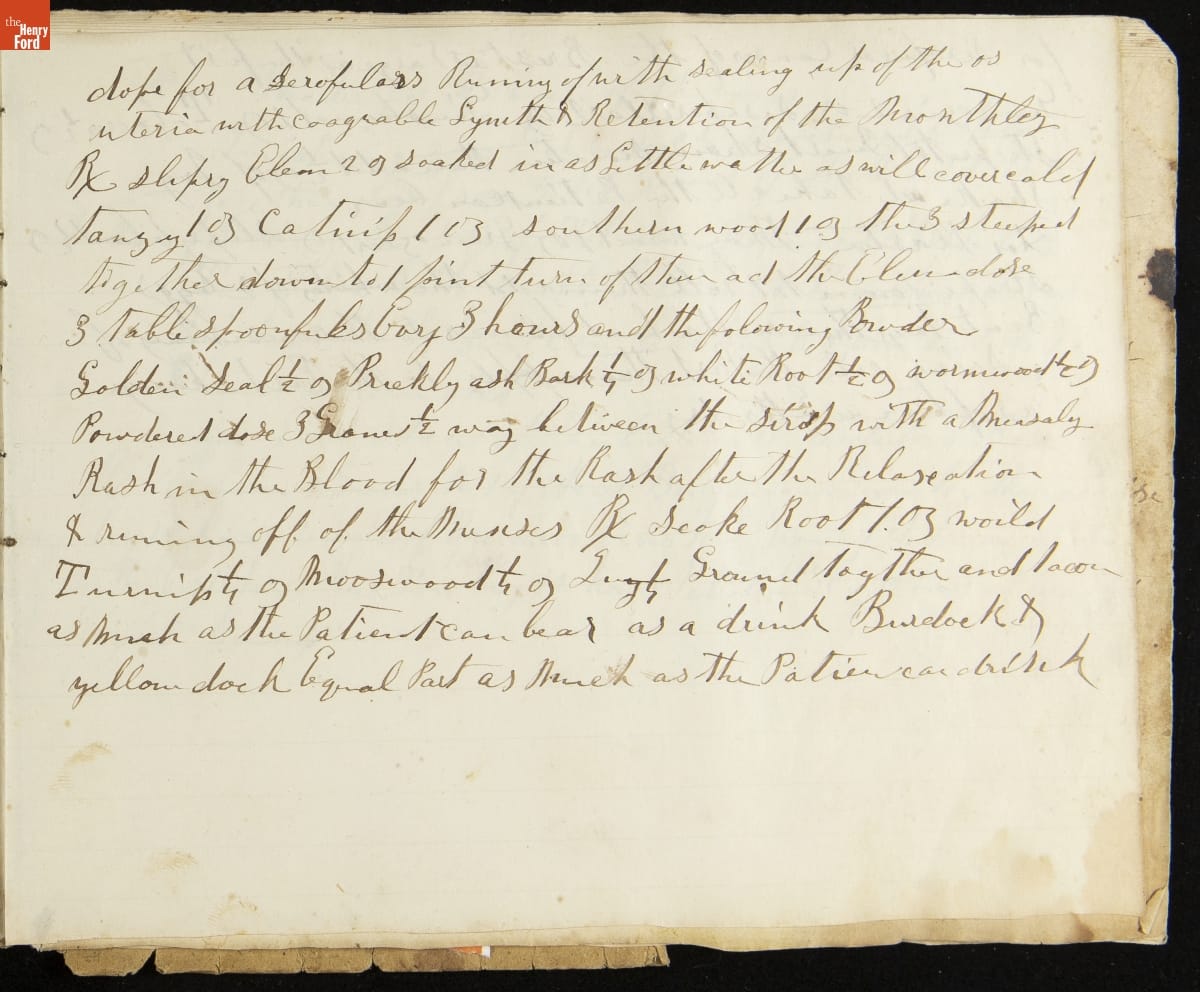 the
Henry
Ford
dope for a scrofulars Runing of with sealing up of the os
uteria with coagrable Lymth & Retention of the Monthley
Rx slipry Elem 2 oz soaked in as Little wather as will cover cold
tanzy 1 oz Catnip 1 oz southern wood 1 oz the 3 steeped
together down to 1 pint turn of then ad the Elem dose
3 tablespoonfuls Evry 3 hours and the folowing Powder
Golden Seal ½ oz Prickly ash Bark ¼ oz white Root ½ oz wormwood ½ oz
Powdered dose 3 Graned ½ way between the sirop with a Measaly
Rash in the Blood for the Rash after the Relaxation
& runing off of the Menses Rx Scoke Root 1 oz woild
Turnip ¼ oz Mooswood ¼ oz Ground together and
as Much as the Patient can bear as a drink Burdock &
yellow dock Equal Part as Much as the Patien can drink